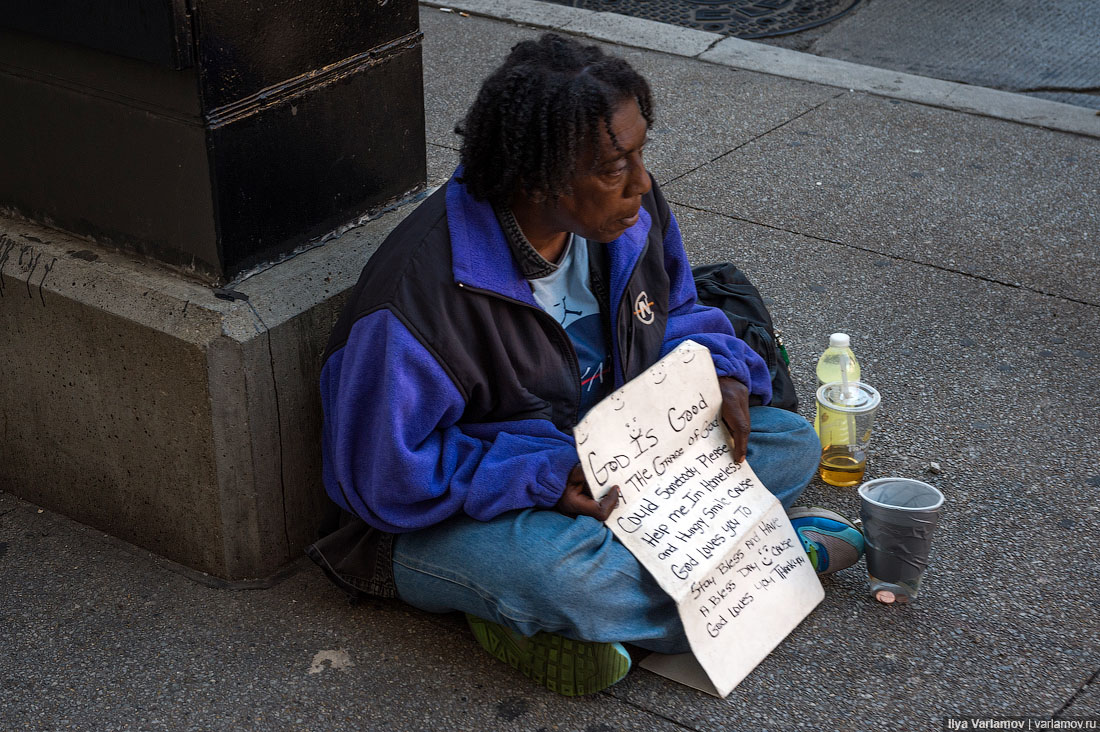 God Is Good
A THe Grace of God
Could Somebody Please
Help me Im Homeless
and Hungry Smile Cause
God Loves you To
Stay Bless And Have
A Bless Day Cause
God Loves you Thank you
Ilya Varlamov | varlamov.ru